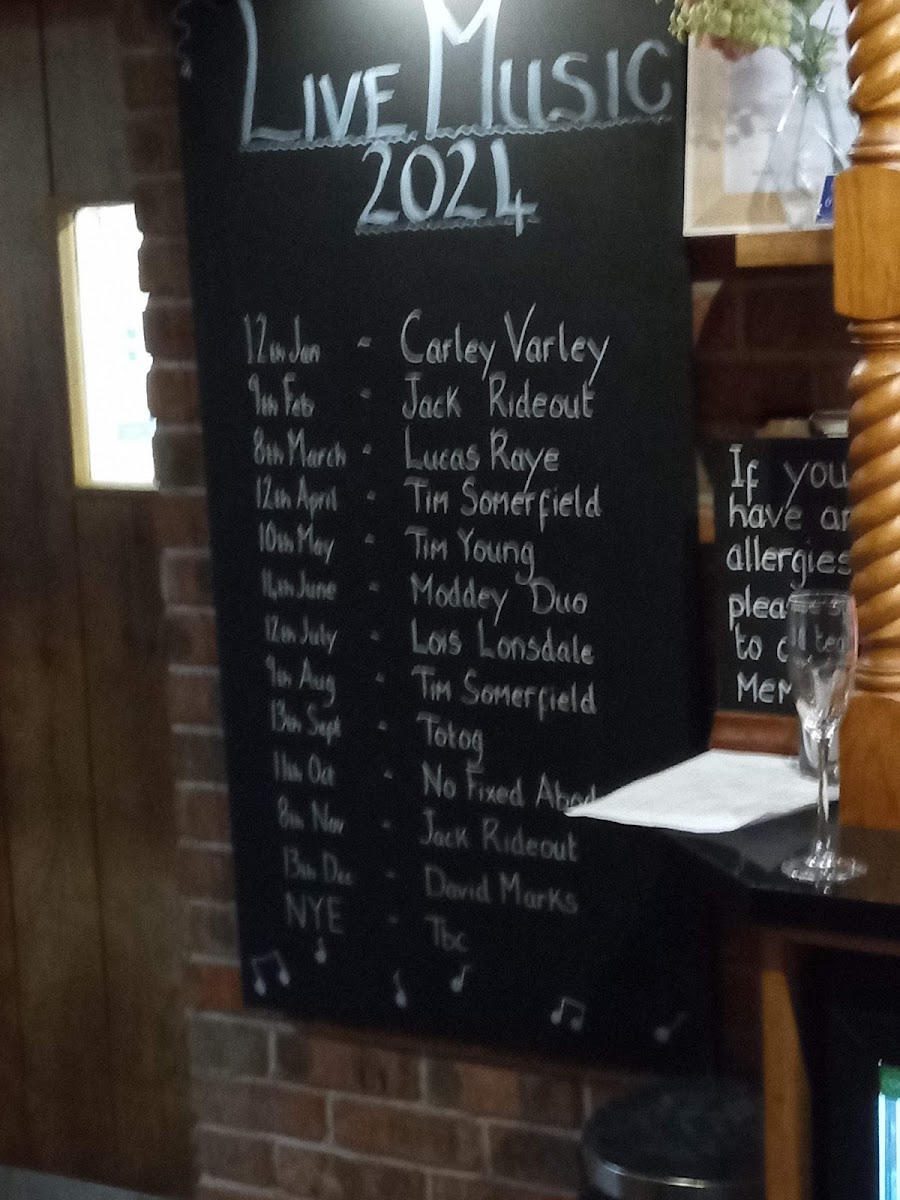 LIVE MUSIC
2024
12th Jan - Carley Varley
9th Feb - Jack Rideout
8th March - Lucas Raye
12th April - Tim Somerfield
10th May - Tim Young
14th June - Moddey Duo
12th July - Lois Lonsdale
9th Aug - Tim Somerfield
13th Sept - Totog
11th Oct - No Fixed Abod
8th Nov - Jack Rideout
13th Dec - David Marks
NYE - Tbc
If you
have an
allergies
pleas
to
Mem